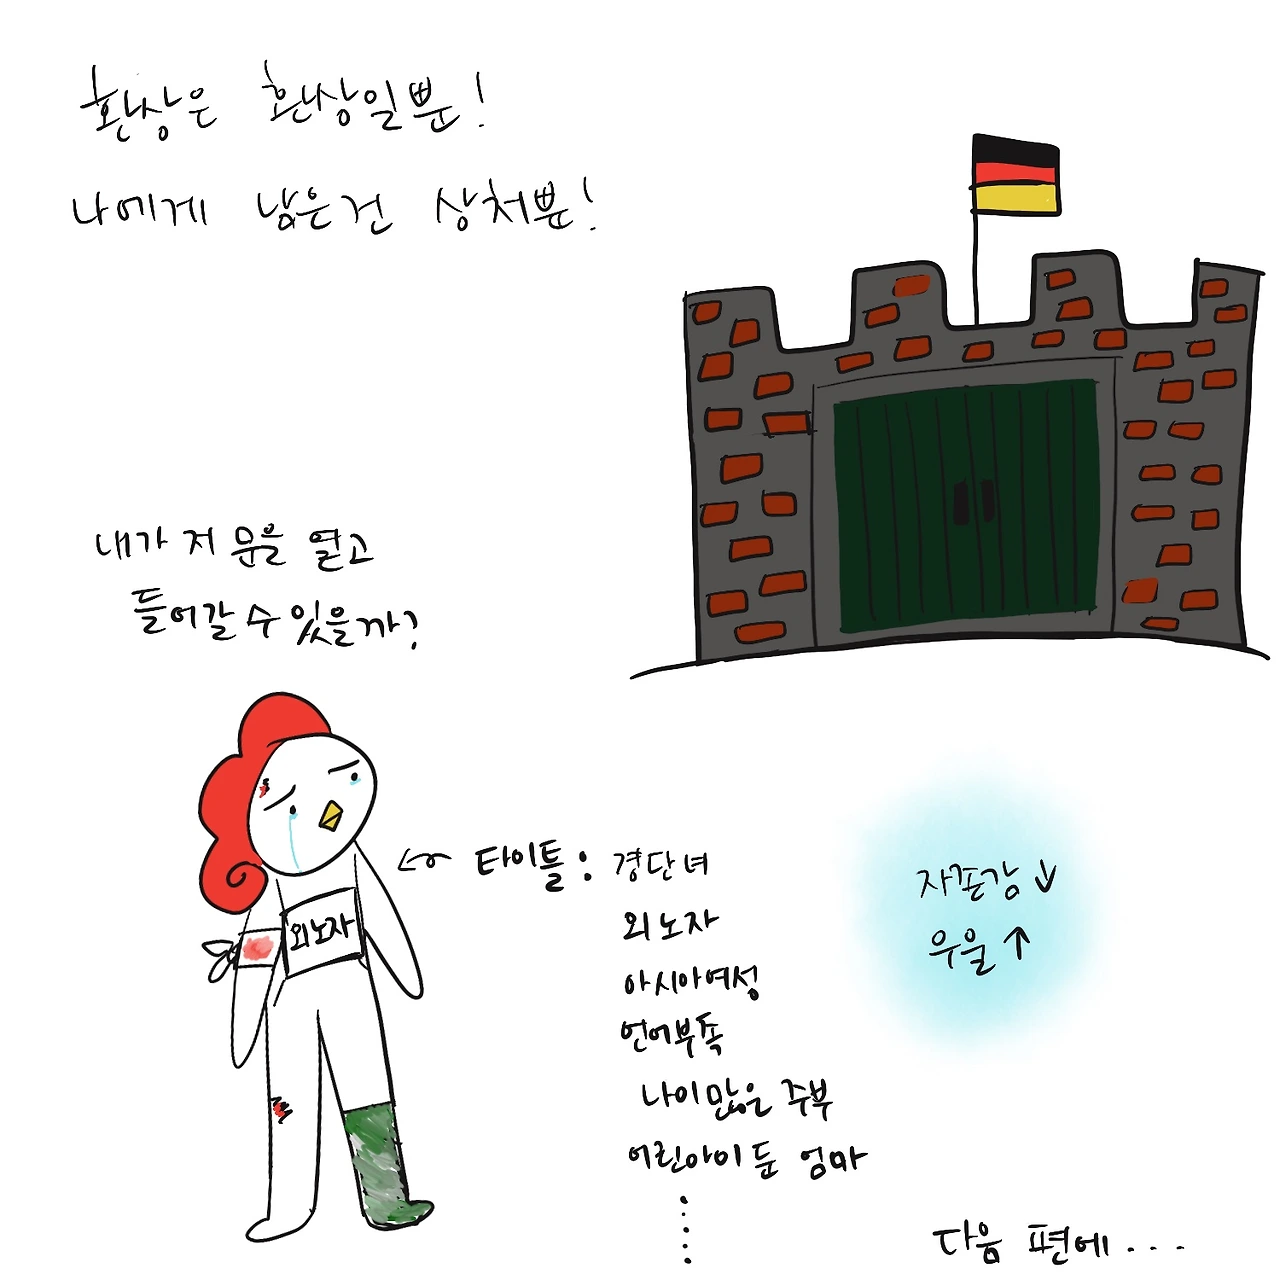 환상은 환상일뿐!
나에게 남은건 상처뿐!
내가 저 문을 열고
들어갈 수 있을까?
외노자
타이틀 : 경단녀
외노자
아시아여성
언어부족
나이많은 주부
어린아이 둔 엄마
자존감↓
우울↑
다음 편에...